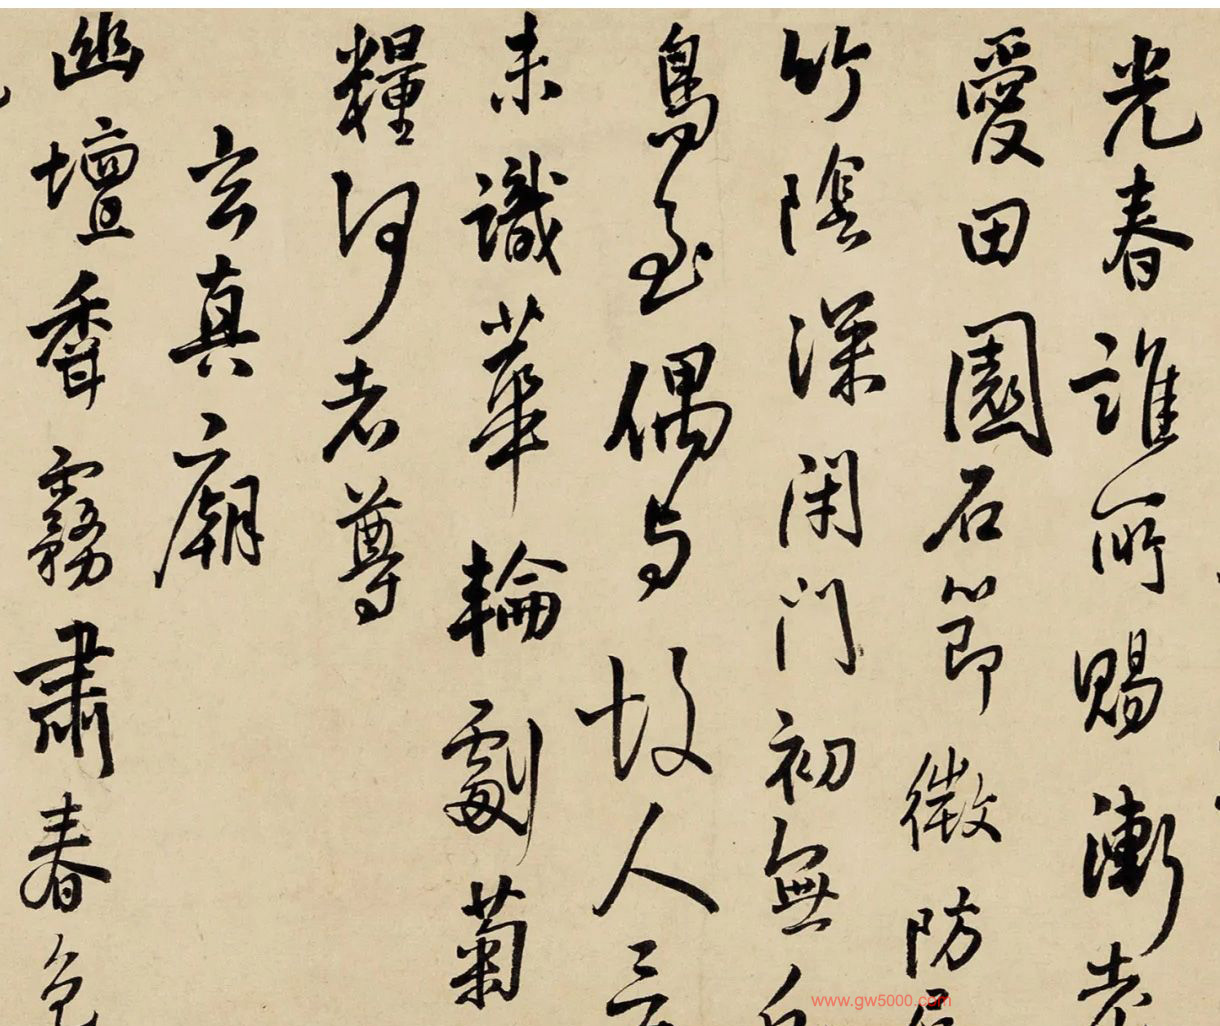 光春誰所賜漸老
愛田園石節微防
竹陰深閑門初無
鳥至偶与故人言
未識華輪劇菊
糧何老尊
玄真廟
幽壇香霧肅春色
www.gw5000.com